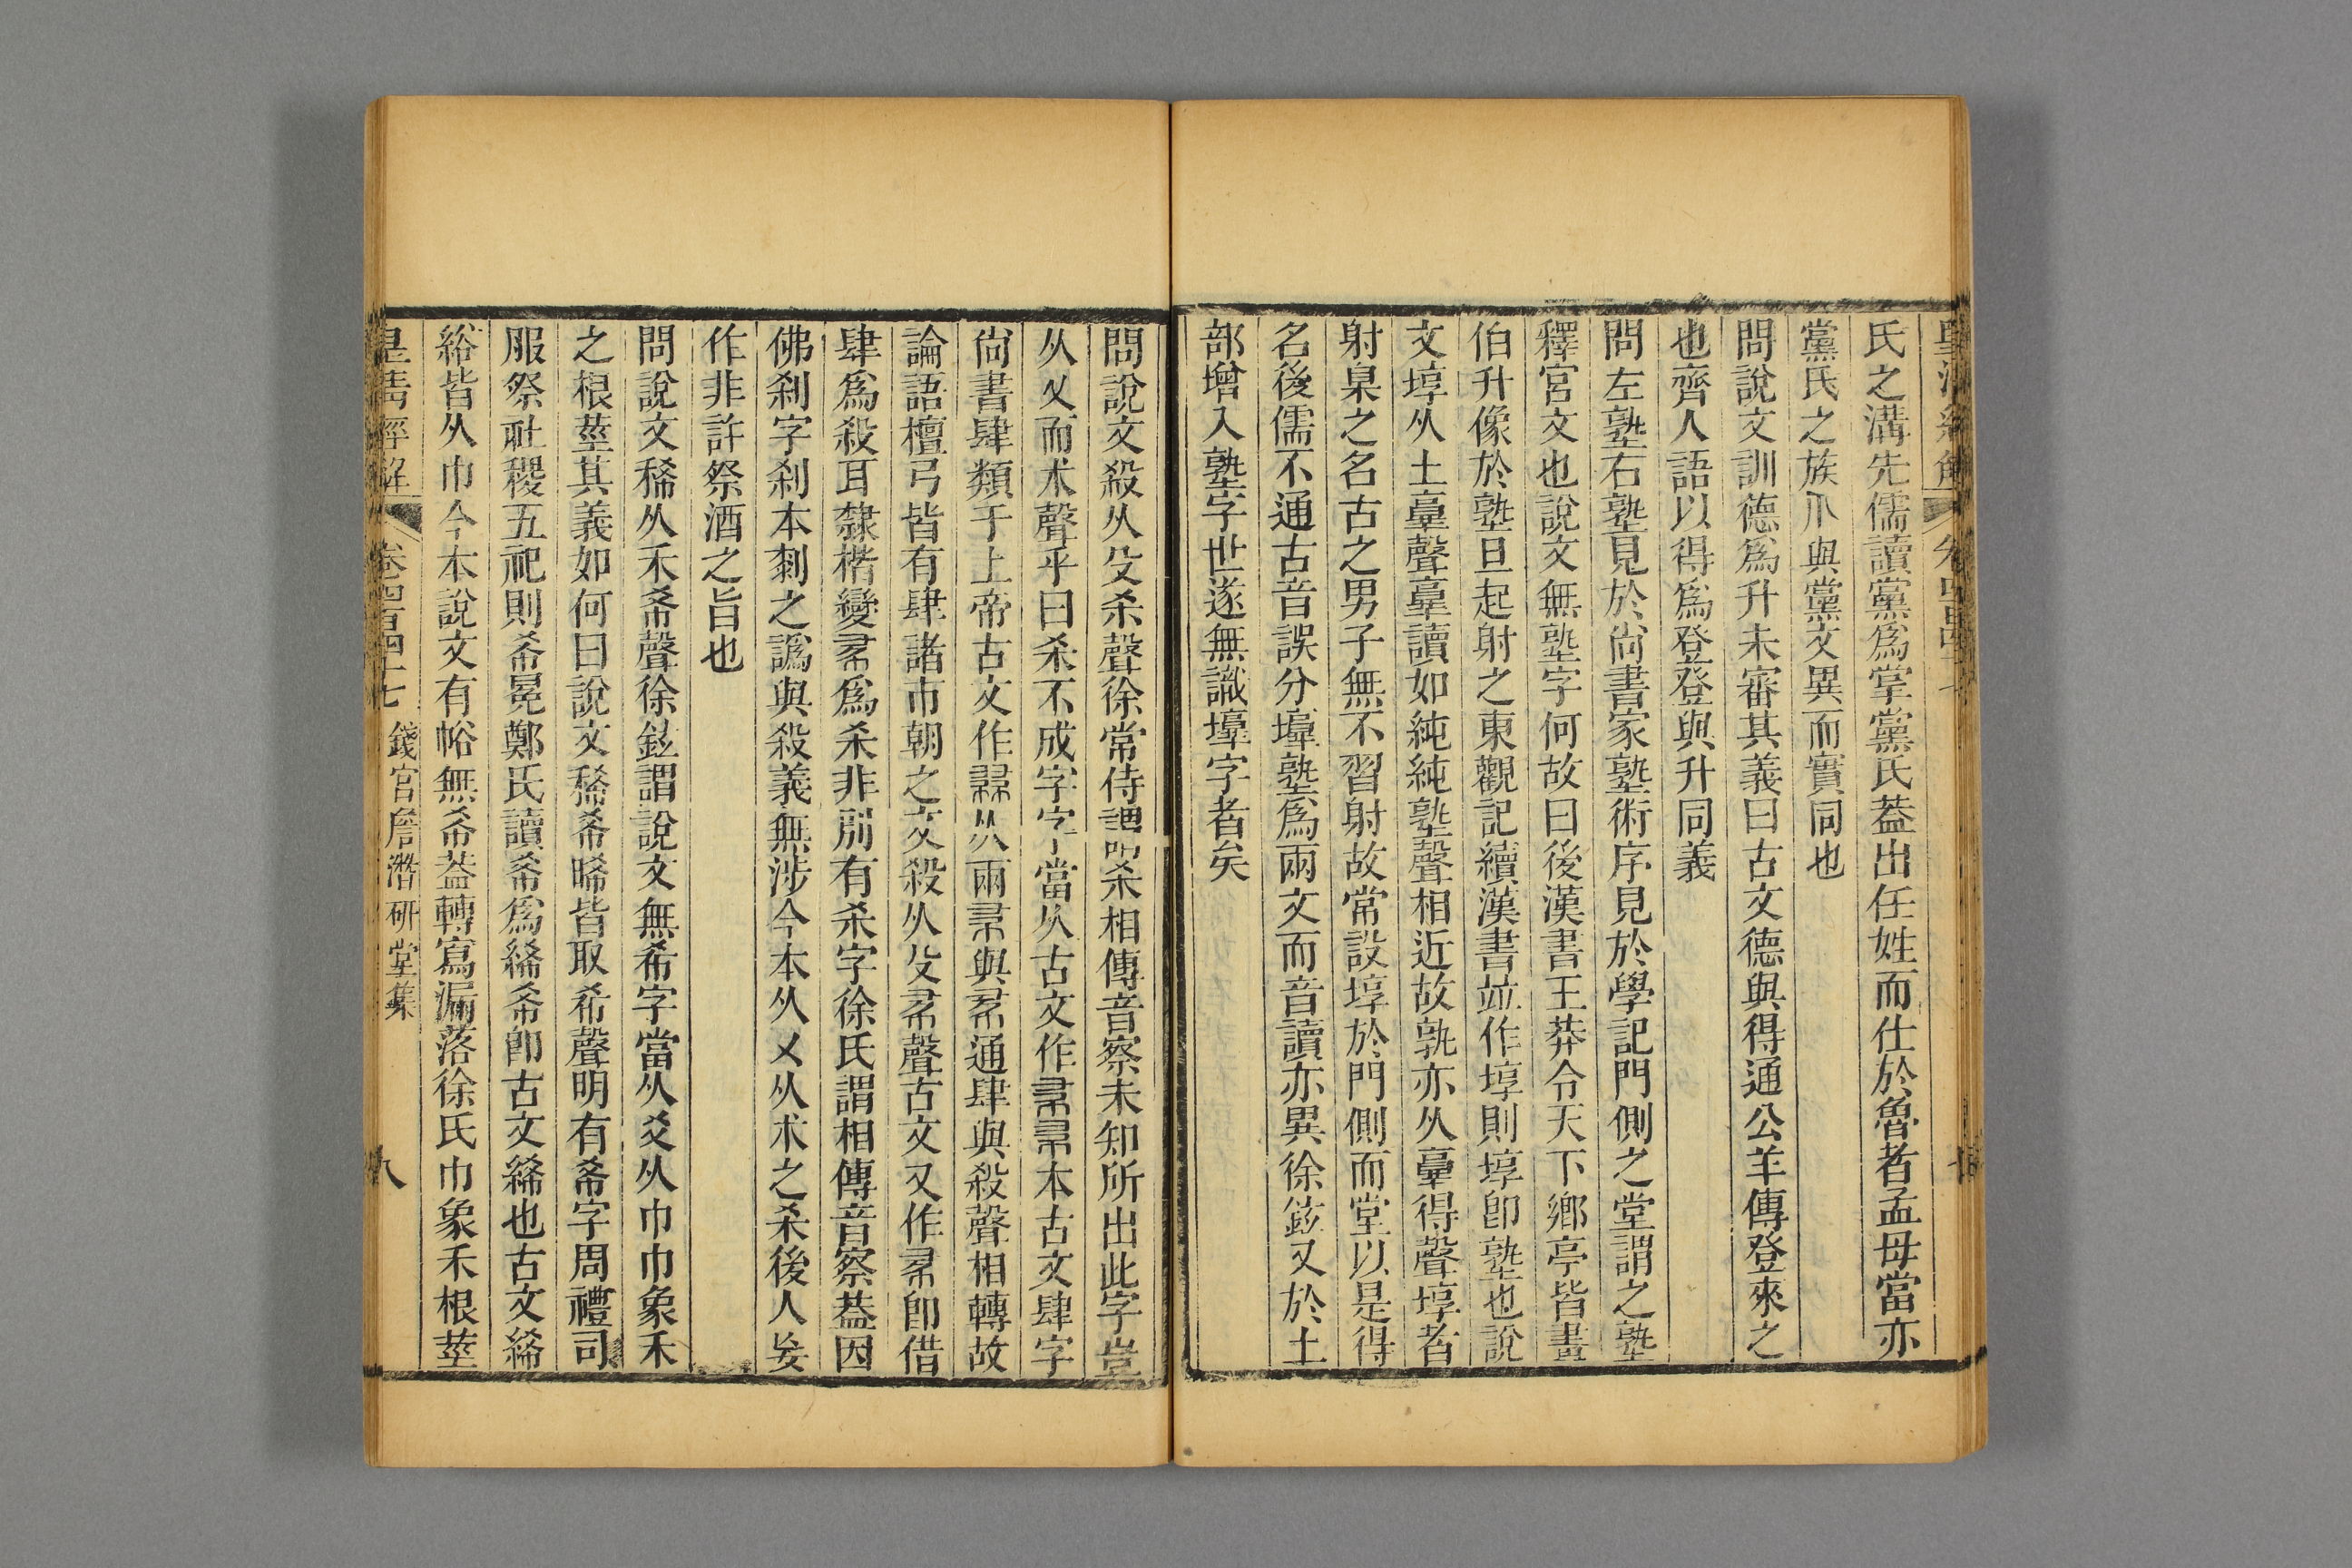 氏之溝先儒讀黨爲掌黨氏葢出任姓而仕於魯者孟母當亦
黨氏之族爪與黨文異而實同也
問說文訓德爲升未審其義曰古文德與得通公羊傳登來之
也齊人語以得爲登登與升同義
問左塾右塾見於尙書家塾術序見於學記門側之堂謂之塾
釋宮文也說文無塾字何故曰後漢書王莽令天下鄉亭皆畫
伯升像於塾旦起射之東觀記續漢書竝作埻則埻卽塾也說
文埻从土𦎫聲𦎫讀如純純塾聲相近故孰亦从𦎫得聲埻者
射臬之名古之男子無不習射故常設埻於門側而堂以是得
名後儒不通古音誤分𡑣塾爲兩文而音讀亦異徐鉉又於土
部增入塾字世遂無識𡑣字者矣
問說文殺从殳杀聲徐常侍謂杀相傳音察未知所出此字豈
从乂而朮聲乎曰杀不成字字當从古文作𢑚𢑚本古文肆字
尙書肆類于上帝古文作𢑚从兩𢑚與𢑚通肆與殺聲相轉故
論語檀弓皆有肆諸市朝之文殺从殳𢑚聲古文又作𢑚卽借
肆爲殺耳隸楷變𢑚爲杀非別有杀字徐氏謂相傳音察葢因
佛刹字刹本剎之譌與殺義無涉今本从乂从朮之杀後人妄
作非許祭酒之旨也
問說文稀从禾希聲徐鉉謂說文無希字當从爻从巾巾象禾
之根莖其義如何曰說文稀希晞皆取希聲明有希字周禮司
服祭社稷五祀則希冕鄭氏讀希爲絺希卽古文絺也古文絺
綌皆从巾今本說文有㡂無希葢轉寫漏落徐氏巾象禾根莖
皇淸經解 卷四百四十七 錢宮詹潛研堂集 八